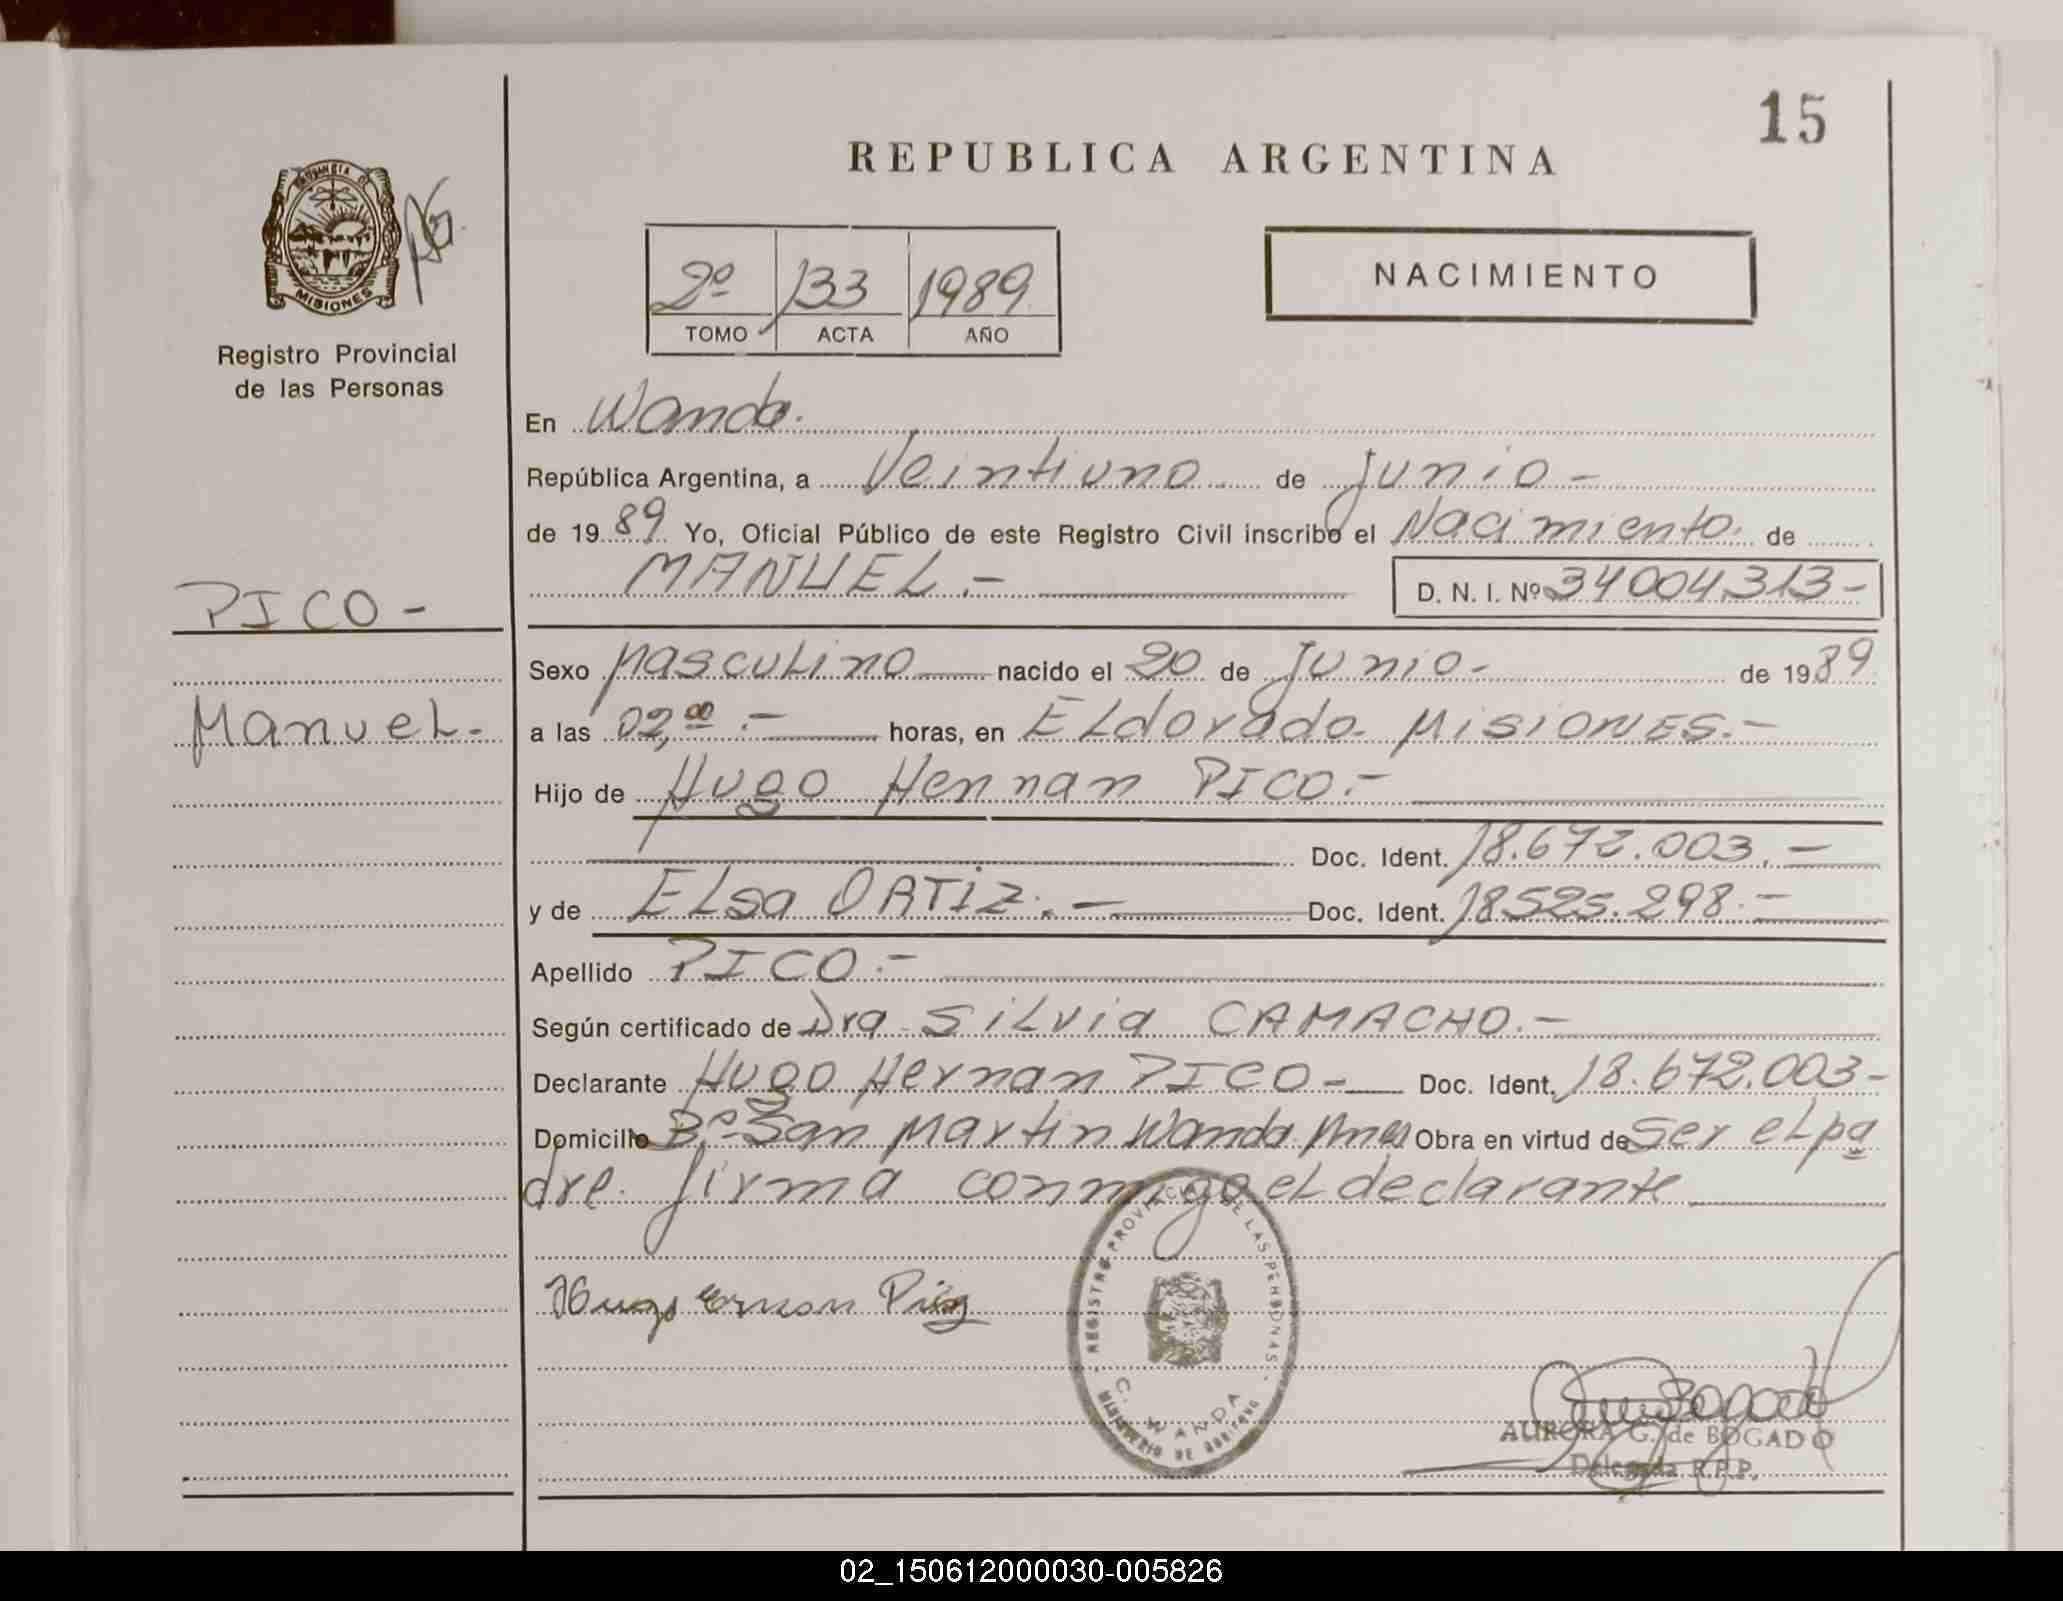 15
REPUBLICA ARGENTINA
PROVINCIA DE
MISIONES
Registro Provincial
de las Personas
2º 133 1989
TOMO ACTA AÑO
NACIMIENTO
En Wanda.
República Argentina, a Veintiuno de Junio -
de 1989 Yo, Oficial Público de este Registro Civil inscribo el Nacimiento. de
MANUEL.- D. N. I. Nº 34004313-
PICO -
Sexo Masculino nacido el 20 de Junio- de 1989
Manuel-
a las 02,00.- horas, en Eldorado- Misiones.-
Hijo de Hugo Hernan PICO.-
Doc. Ident. 18.672.003.-
y de Elsa ORTIZ.- Doc. Ident. 18525.298.-
Apellido PICO.-
Según certificado de Dra Silvia CAMACHO.-
Declarante Hugo Hernan PICO- Doc. Ident. 18.672.003-
Domicilio Bº San Martin Wanda Mnes Obra en virtud de Ser el pa
dre. firma conmigo el declarante
REGISTRO PROVINCIAL DE LAS PERSONAS
C. WANDA
MINISTERIO DE GOBIERNO
Hugo ernan
AURORA G. de BOGADO
Delegada R.P.P.
02_150612000030-005826